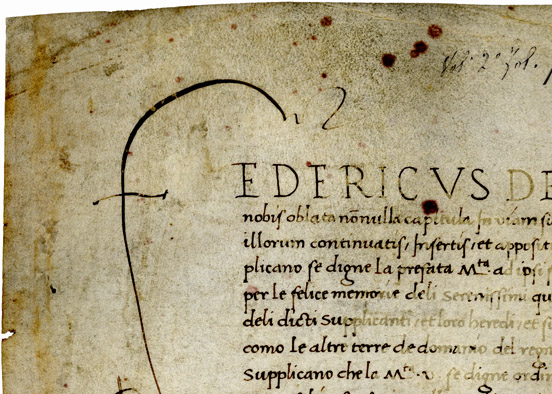 Vol. 2° fol.
FEDERICUS DE
nobis oblata nōnulla capitula In viam su
illorum continuatis, Insertis, et apposit
plicano se digne la prefata M.ta ad ipsi
per le felice memorie deli Serenissimi qu
deli dicti Supplicanti, et loro heredi, et s
como le altre terre de domanio del regn
Supplicano che la M.ta v. se digne ordin